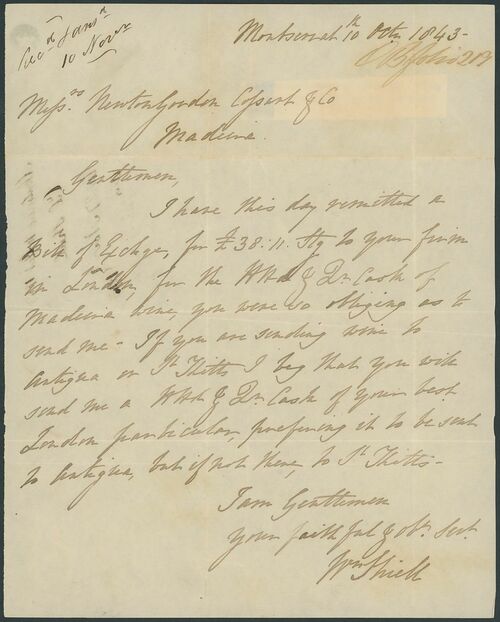 Montserrat 10th Octr 1843-
Recd
10 Novr
Messrs Newton Gordon Cossart & Co
Madeira
Gentlemen,
I have this day remitted a
Bill of Exchge, for £38:11. Stg to your firm
in London, for the HHd & Qr Cask of
Madeira wine, you were so obliging as to
send me- If you are sending wine to
Antigua or St Kitts I beg that you will
send me a HHd & Qr Cask of your best
London particular, prefering it to be sent
to Antigua, but if not there, to St Kitts-
I am Gentlemen
your faithful & obt Sert.
Wm Shiell